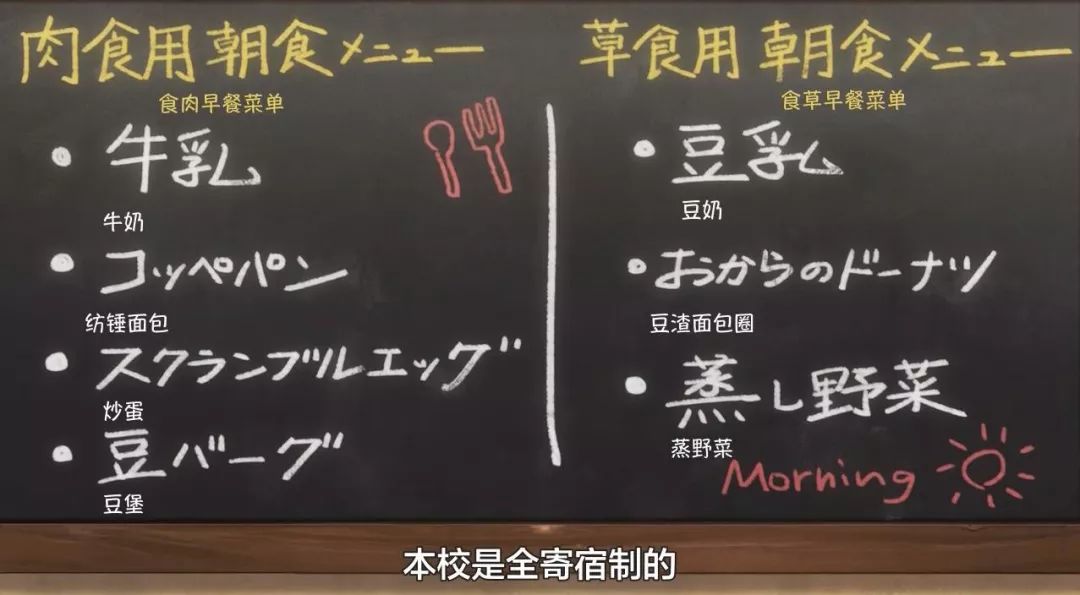 肉食用朝食メニュー
食肉早餐菜单
牛乳
牛奶
コッペパン
纺锤面包
スクランブルエッグ
炒蛋
豆バーグ
豆堡
草食用朝食メニュー
食草早餐菜单
豆乳
豆奶
おからのドーナツ
豆渣面包圈
蒸し野菜
蒸野菜
Morning
本校是全寄宿制的